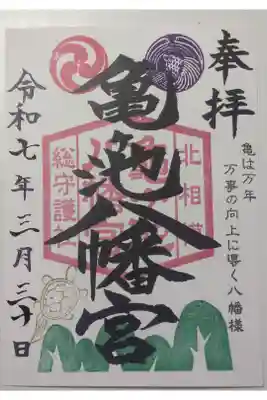 奉拝
亀は万年
万事の向上に導く八幡様
亀池八幡宮
北相
総守護社
令和七年三月三十日